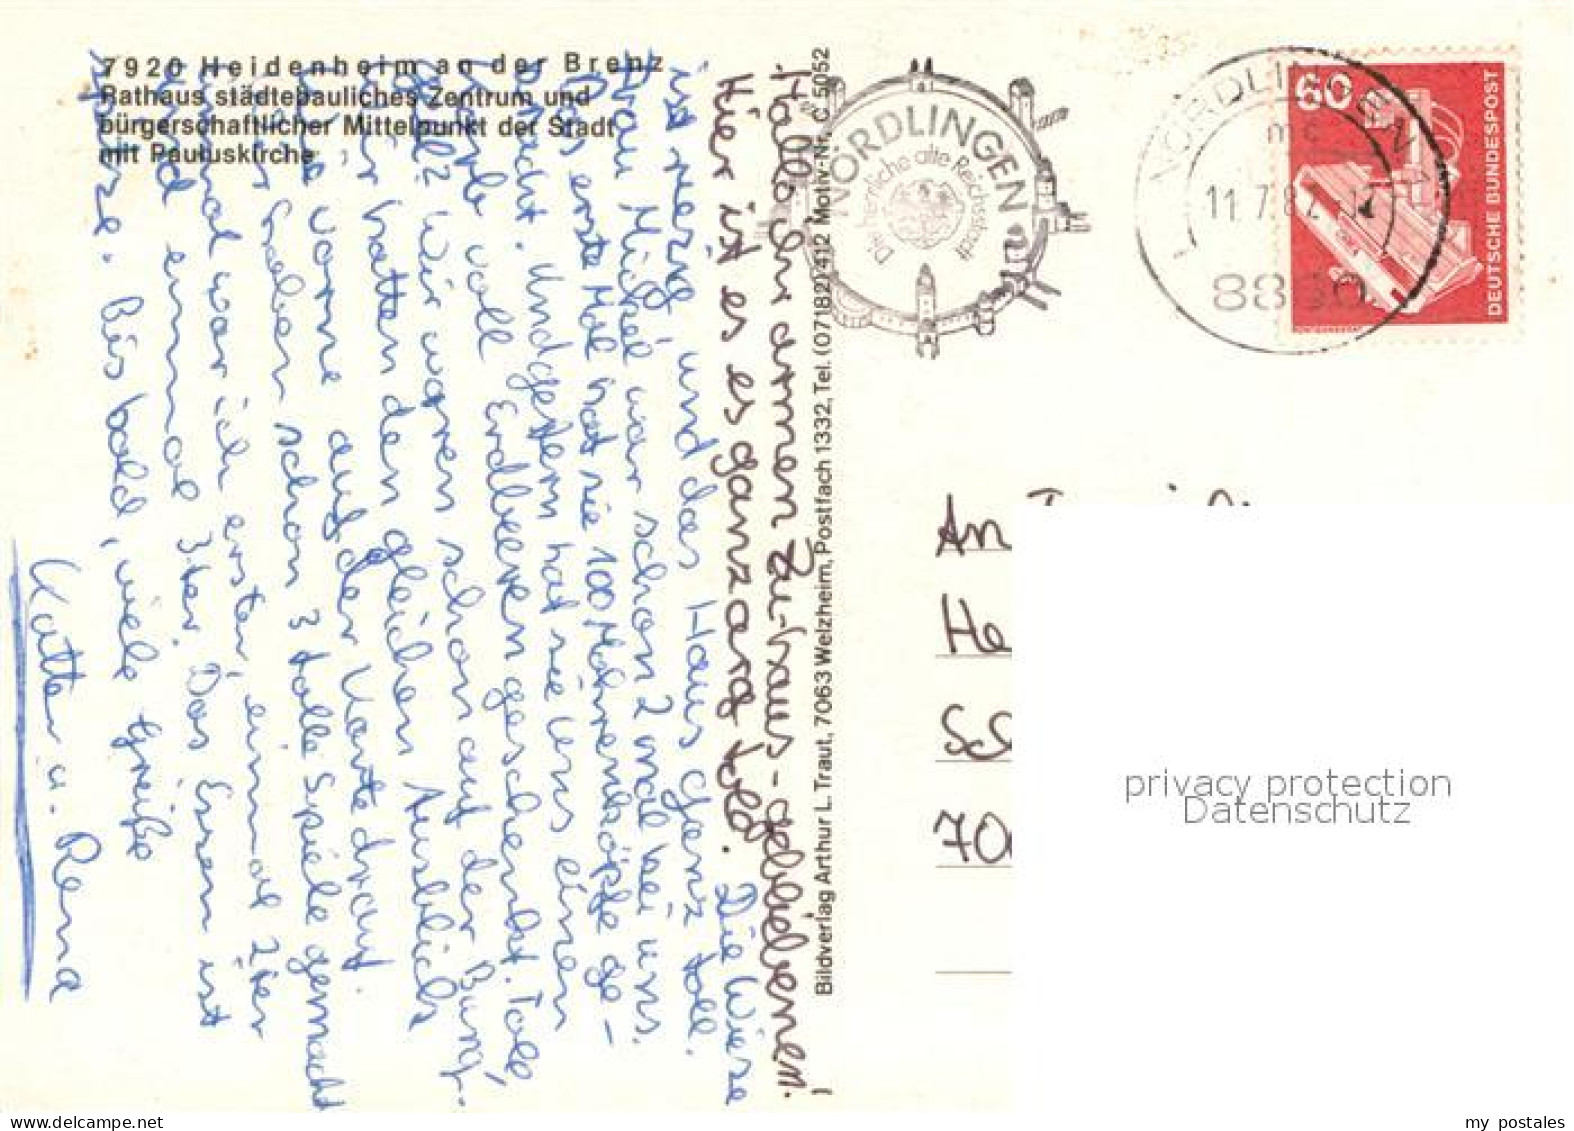 7920 Heidenheim an der Brenz
Rathaus städtebauliches Zentrum und
bürgerschaftlicher Mittelpunkt der Stadt
mit Pauluskirche
Hallo ihr armen zu-haus-gebliebenen.
Hier ist es ganz arg toll. Die Wiese
ist riesig und das Haus ganz toll.
Frau Mückel war schon 2 mal bei uns.
Das erste Mal hat sie 100 Mohrenköpfe ge-
bracht. Und gestern hat sie uns einen
Korb voll Erdbeeren geschenkt. Toll
gell? Wir waren schon auf der Burg.
Wir hatten den gleichen Ausblick
wie vorne auf der Karte drauf.
Wir haben schon 3 tolle Spiele gemacht
einmal war ich erster, einmal 2ter
und einmal 3ter. Das Essen ist
spitze. Bis bald, viele Grüße
Katter u. Rena
Bildverlag Arthur L. Traut, 7063 Welzheim, Postfach 1332, Tel. (07182) 412 Motiv-Nr. C. 5052
NÖRDLINGEN
Die herrliche alte Reichsstadt
NÖRDLINGEN 1
mc
11.7.82
8860
60
DEUTSCHE BUNDESPOST
An
He
SC
70
privacy protection
Datenschutz
my postales